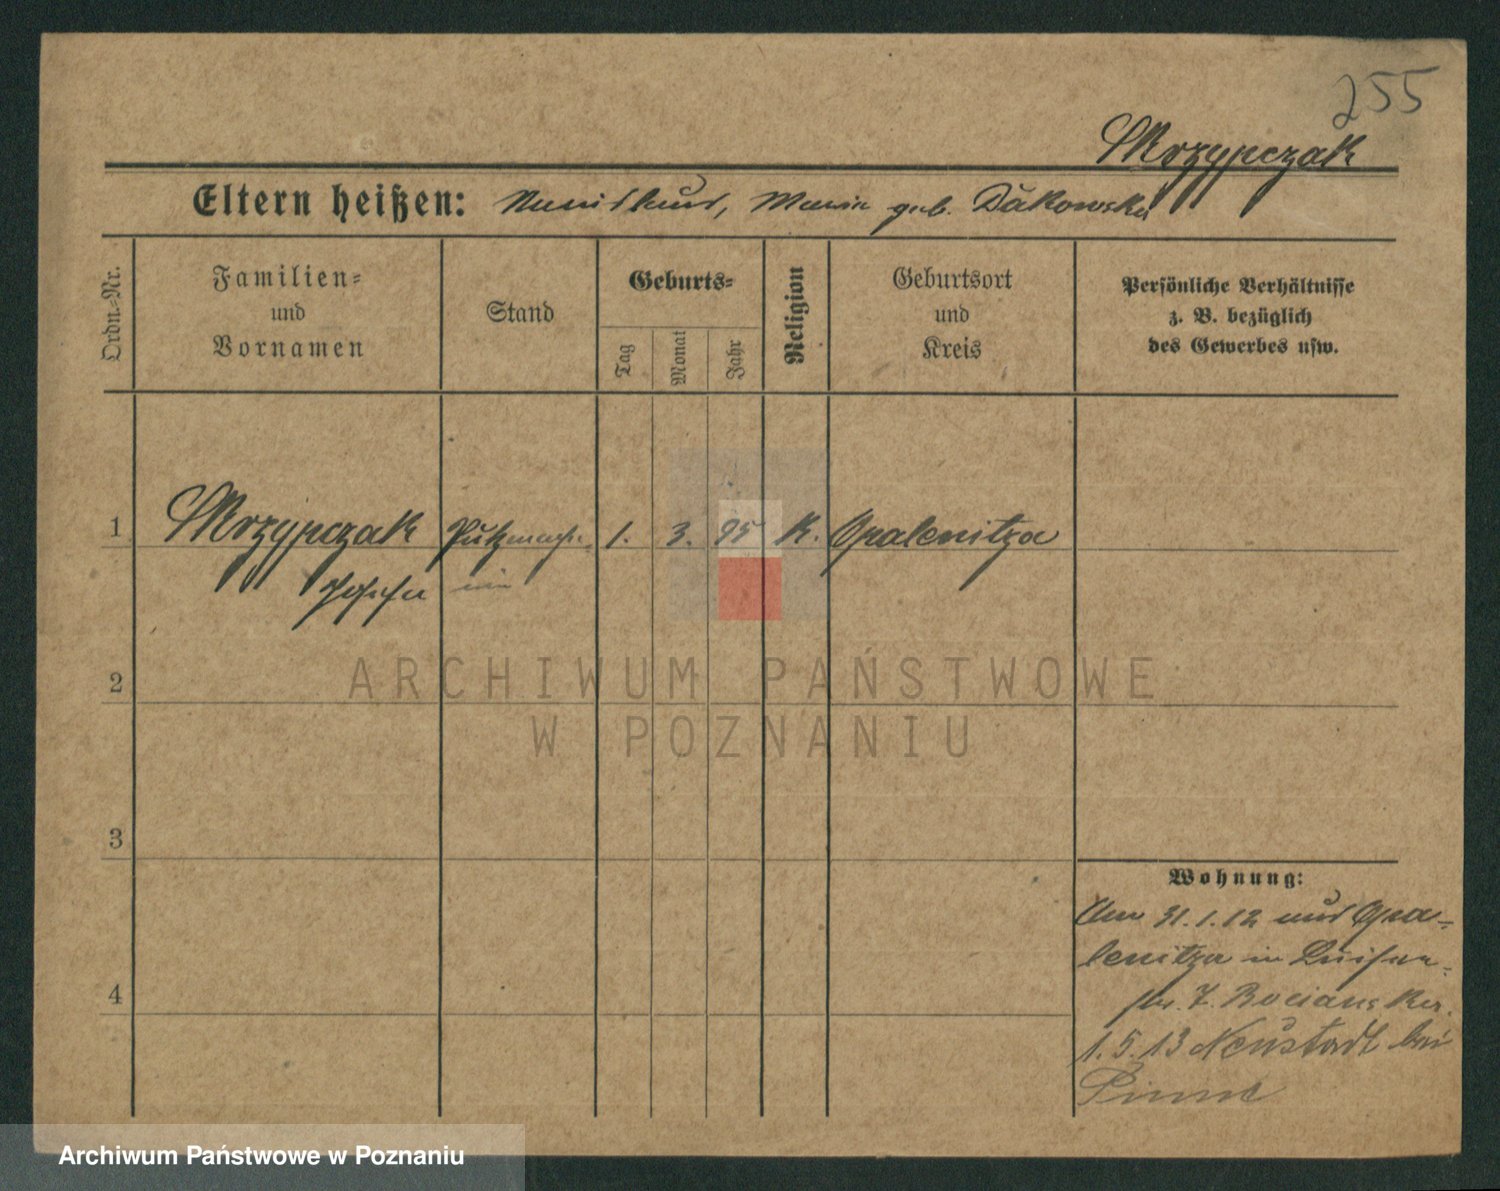 255
Skrzypczak
Eltern heißen: Maria geb. Dukowska
Ordn.-Nr.
Familien-
und
Vornamen
Stand
Geburts-
Tag
Monat
Jahr
Religion
Geburtsort
und
Kreis
Persönliche Verhältnisse
z. B. bezüglich
des Gewerbes usw.
1 Skrzypczak Putzmach. 1. 3. 95 K. Opalenitza
Josefa in
2
ARCHIWUM PAŃSTWOWE
W POZNANIU
3
Wohnung:
Am 31.1.12 aus Opa-
lenitza in Luisen-
str. 7.
4
1.5.13 Neustadt bei
Pinne
Archiwum Państwowe w Poznaniu